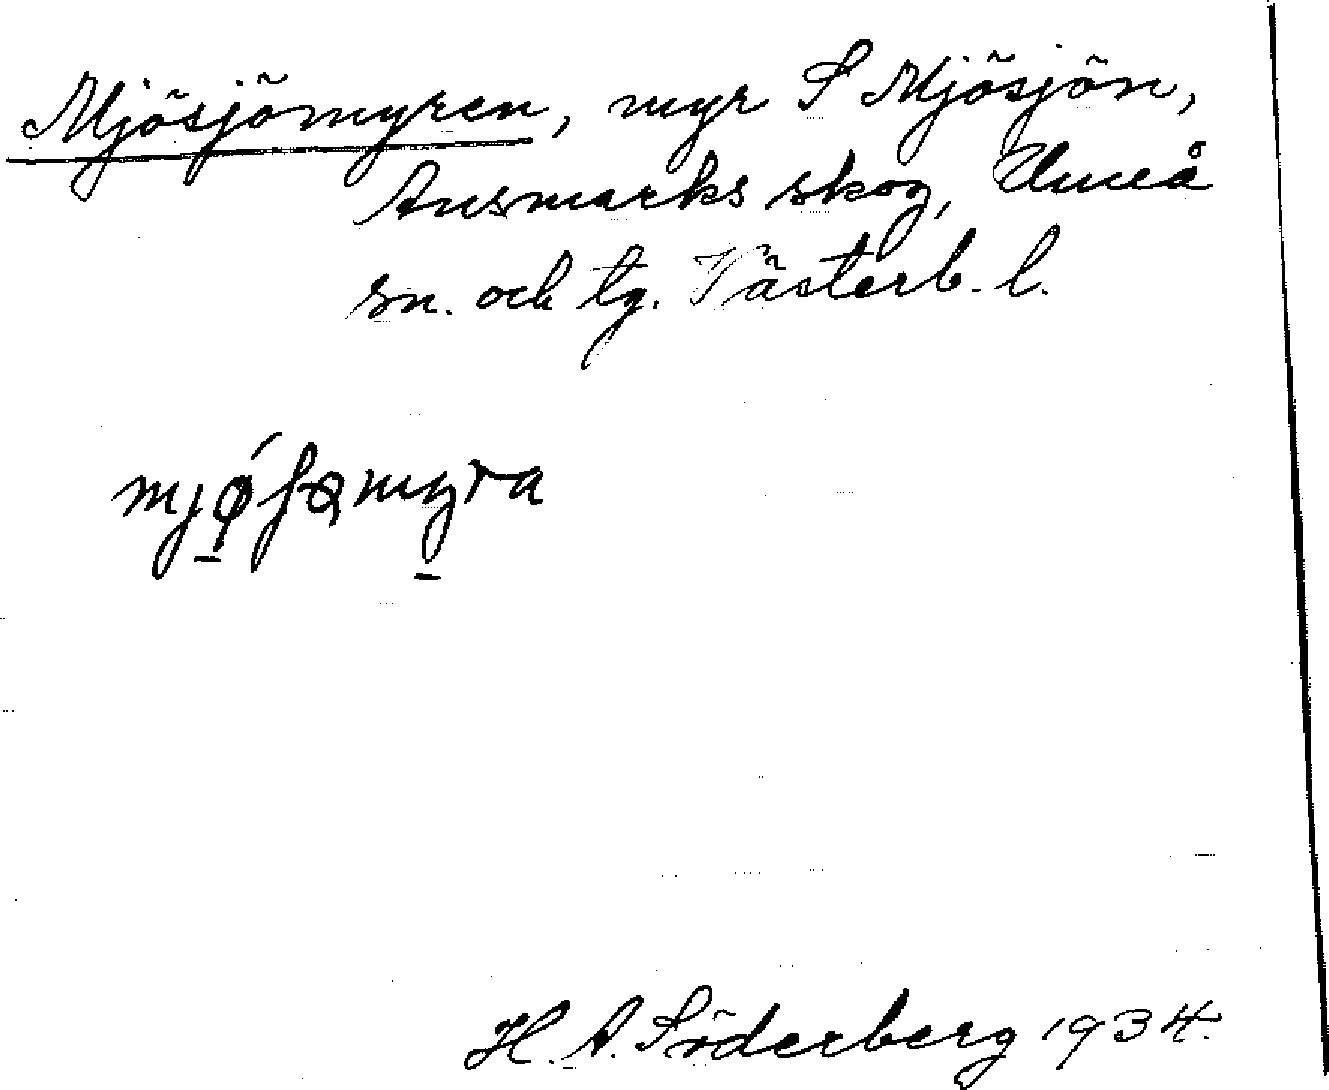 Mjösjömyren, myr S Mjösjön,
Ansmarks skog, Umeå
sn. och tg. Västerb. l.
H. A. Söderberg 1934.